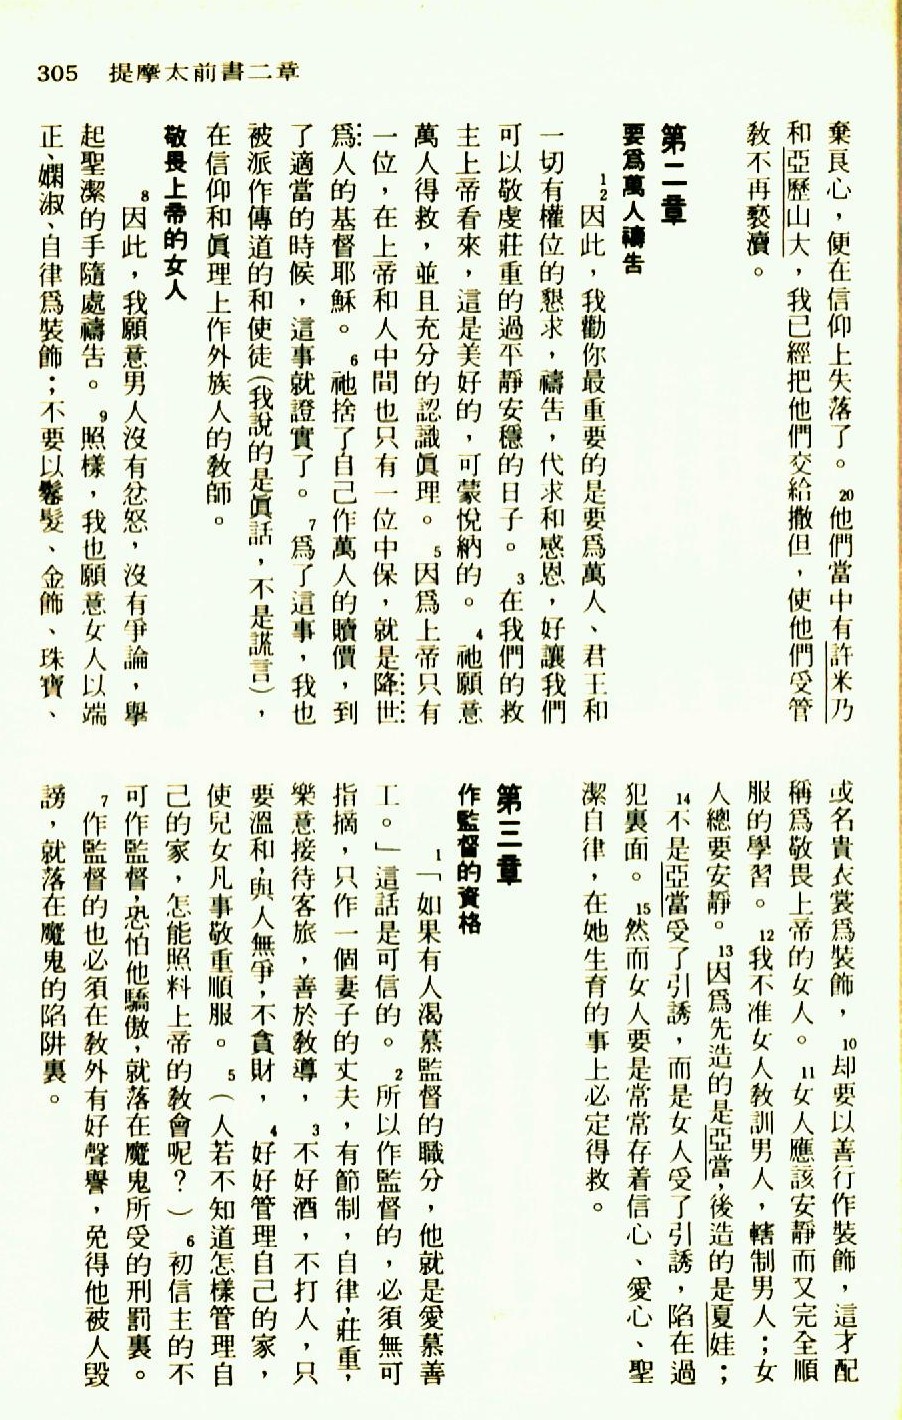 305 提摩太前書二章
棄良心，便在信仰上失落了。 20他們當中有許米乃
和亞歷山大，我已經把他們交給撒但，使他們受管
敎不再褻瀆。
第二章
要爲萬人禱吿
1 2因此，我勸你最重要的是要爲萬人、君王和
一切有權位的懇求，禱吿，代求和感恩，好讓我們
可以敬虔莊重的過平靜安穩的日子。 3在我們的救
主上帝看來，這是美好的，可蒙悅納的。 4祂願意
萬人得救，並且充分的認識眞理。 5因爲上帝只有
一位，在上帝和人中間也只有一位中保，就是降世
爲人的基督耶穌。 6祂捨了自己作萬人的贖價，到
了適當的時候，這事就證實了。 7爲了這事，我也
被派作傳道的和使徒（我說的是眞話，不是謊言），
在信仰和眞理上作外族人的敎師。
敬畏上帝的女人
8因此，我願意男人沒有忿怒，沒有爭論，舉
起聖潔的手隨處禱吿。 9照樣，我也願意女人以端
正、嫻淑、自律爲裝飾；不要以鬈髮、金飾、珠寶、
或名貴衣裳爲裝飾， 10却要以善行作裝飾，這才配
稱爲敬畏上帝的女人。 11女人應該安靜而又完全順
服的學習。 12我不准女人敎訓男人，轄制男人；女
人總要安靜。 13因爲先造的是亞當，後造的是夏娃；
14不是亞當受了引誘，而是女人受了引誘，陷在過
犯裏面。 15然而女人要是常常存着信心、愛心、聖
潔自律，在她生育的事上必定得救。
第三章
作監督的資格
1「如果有人渴慕監督的職分，他就是愛慕善
工。」這話是可信的。 2所以作監督的，必須無可
指摘，只作一個妻子的丈夫，有節制，自律，莊重，
樂意接待客旅，善於敎導， 3不好酒，不打人，只
要溫和，與人無爭，不貪財， 4好好管理自己的家，
使兒女凡事敬重順服。 5（人若不知道怎樣管理自
己的家，怎能照料上帝的敎會呢？） 6初信主的不
可作監督，恐怕他驕傲，就落在魔鬼所受的刑罰裏。
7作監督的也必須在敎外有好聲譽，免得他被人毀
謗，就落在魔鬼的陷阱裏。